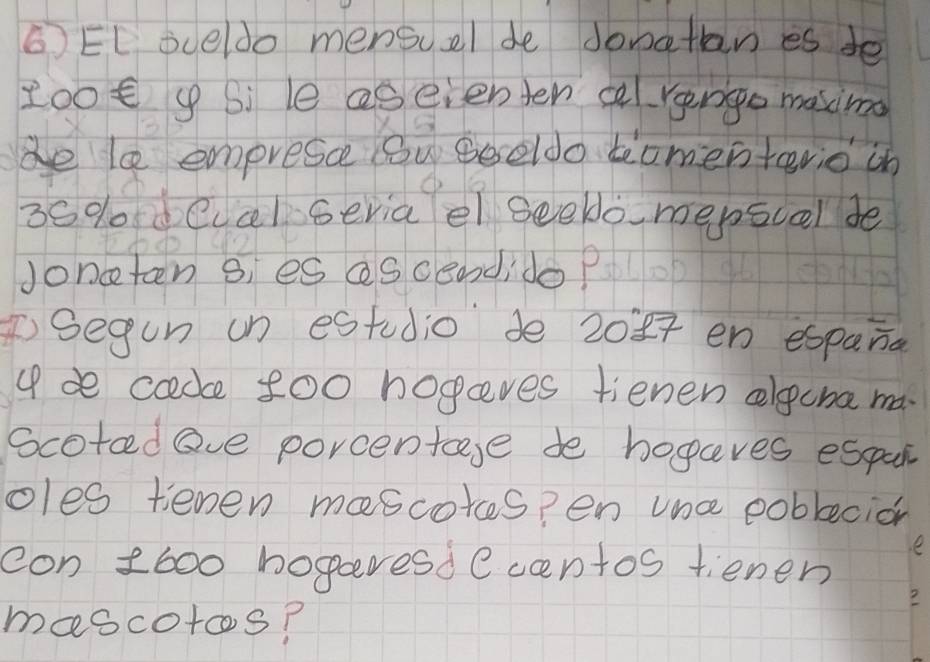 6) EL sueldo mensual de Jonatan es de
100€ y si le aseienten al rango maximo
de la empresa su seeldo aumentario un
35% ¿Cual seria el seeldo mensual de
Jonatan si es ascendido?
Segun un estudio de 2017 en españa
4 de cada 100 hogares tienen alguna ma-
scota¿Que porcentaje de hogares españ
oles tienen mascotas?en una poblacion
con 1600 hogares¿Cuantos tienen
mascotas?